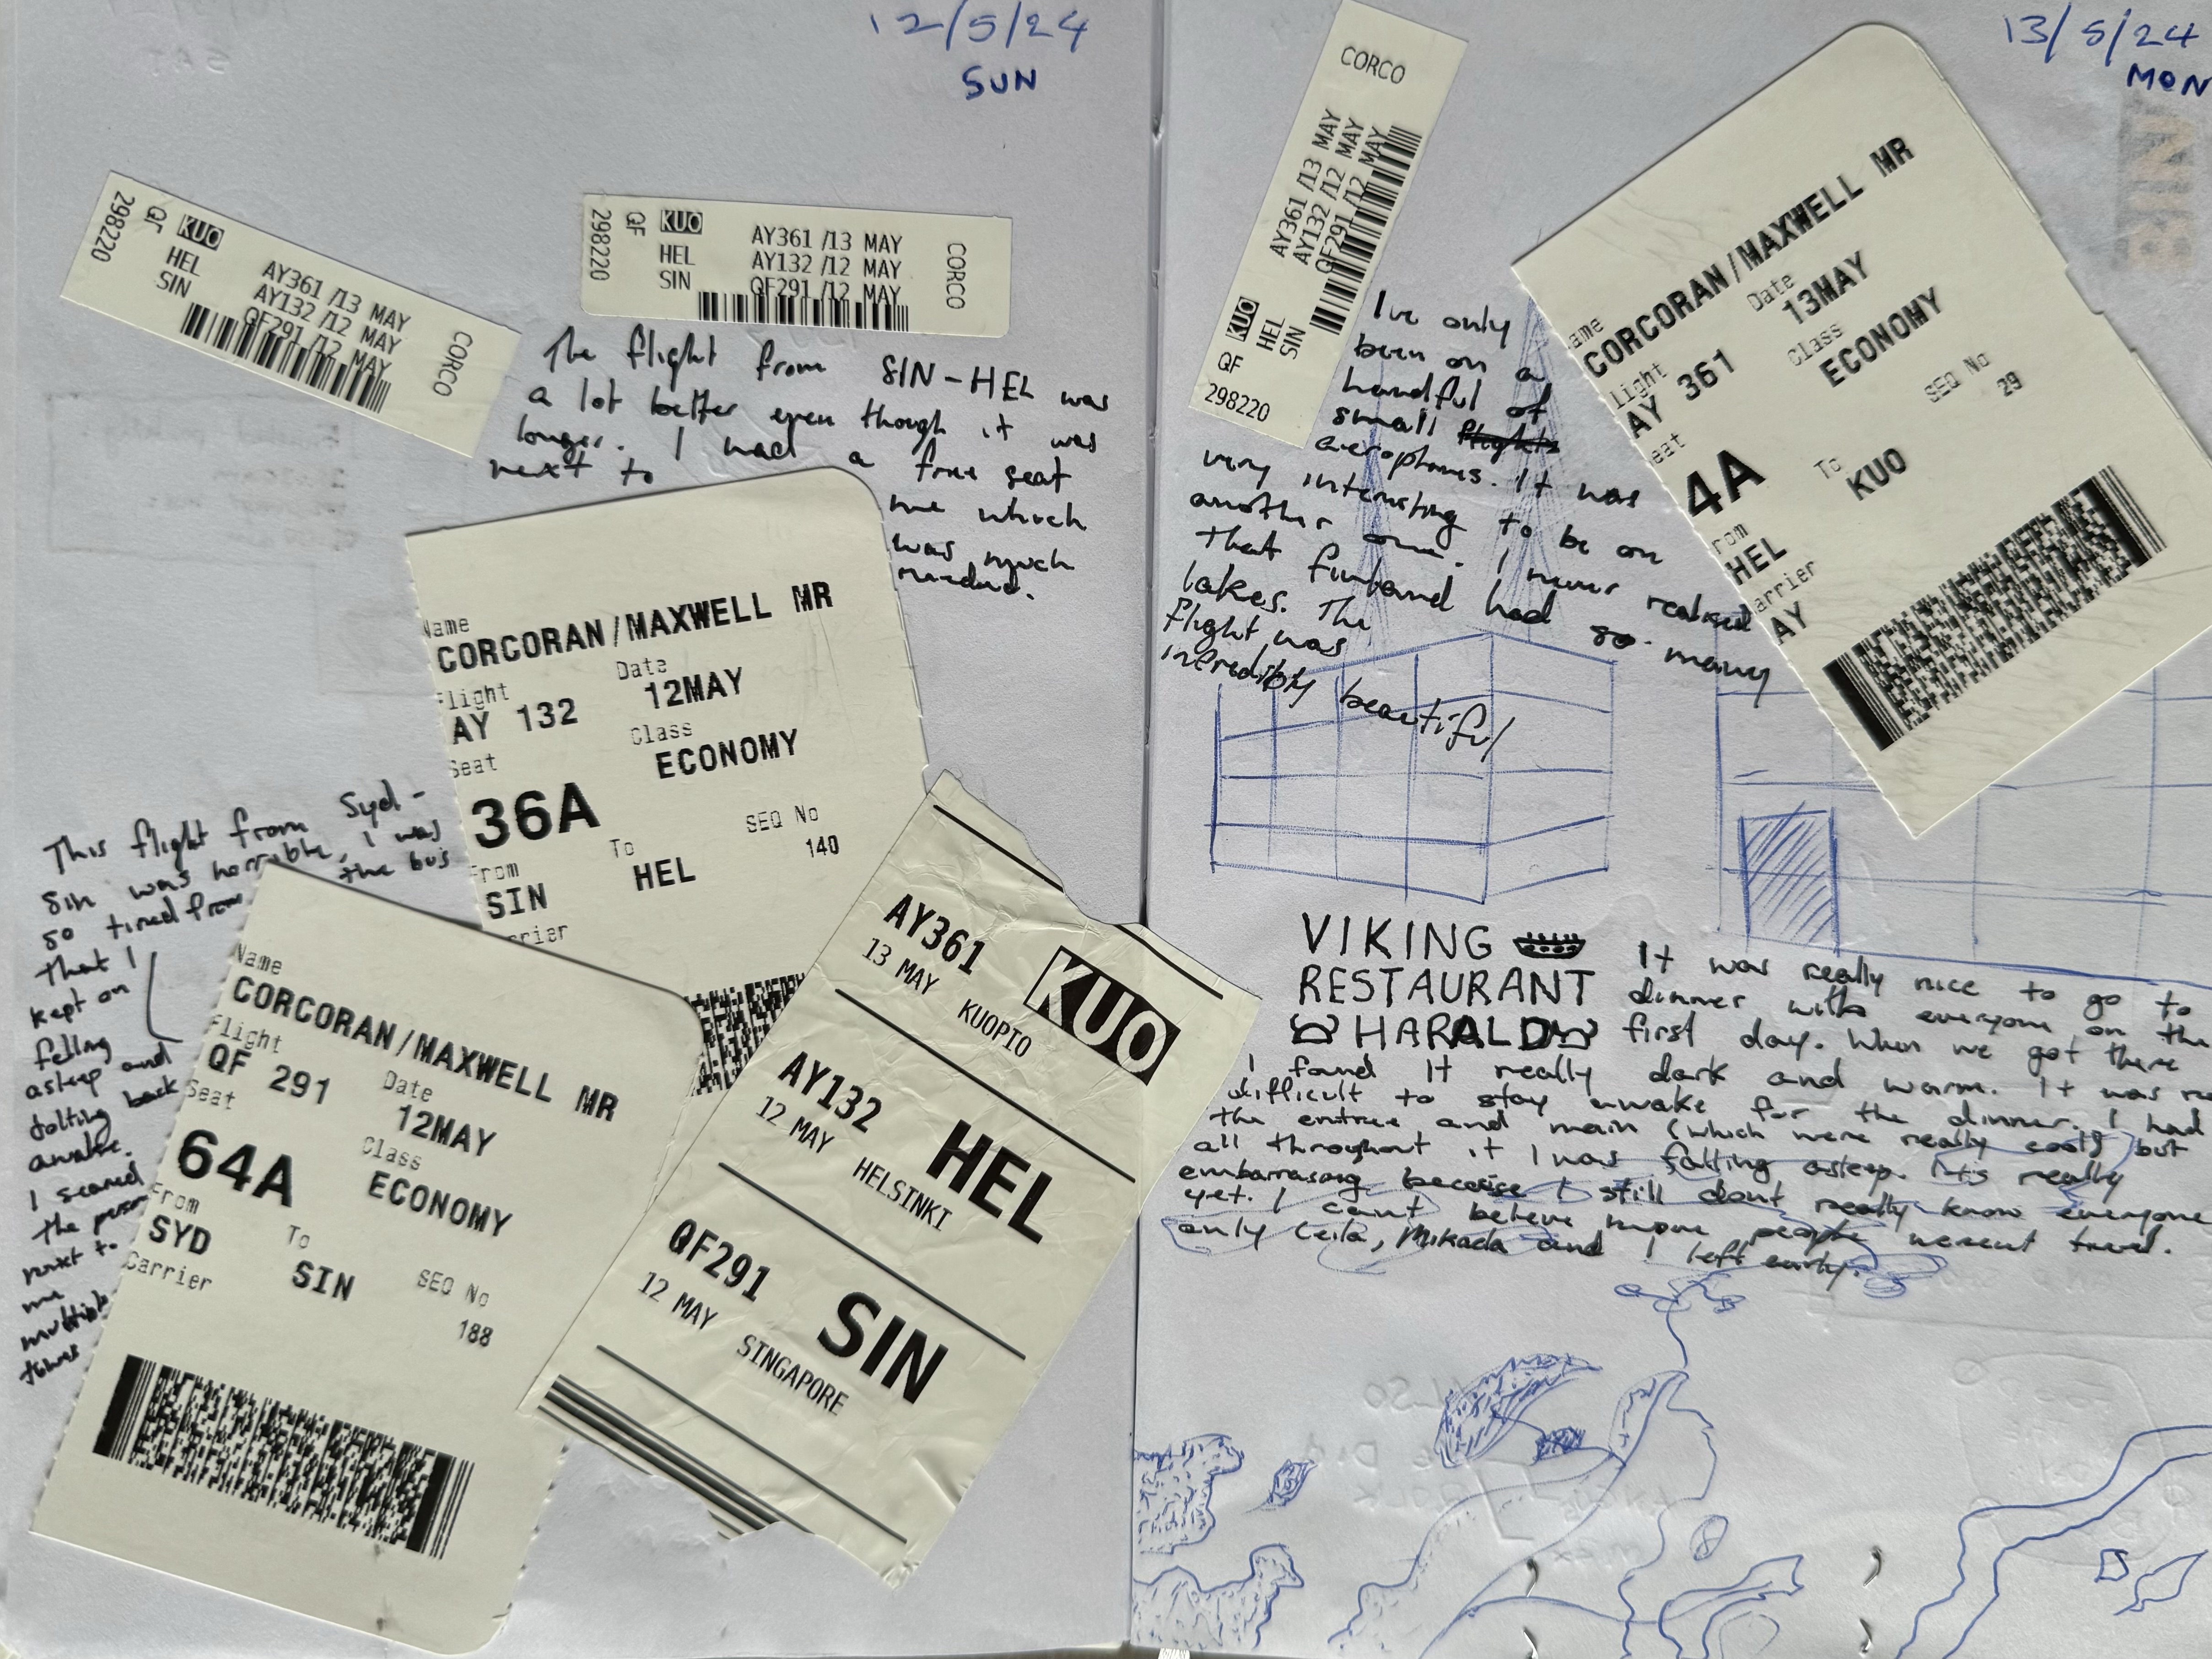 12/5/24
SUN
298220
QF
KUO
HEL
SIN
AY361 /13 MAY
AY132 /12 MAY
QF291 /12 MAY
CORCO
298220
QF
KUO
HEL
SIN
AY361 /13 MAY
AY132 /12 MAY
QF291 /12 MAY
CORCO
The flight from SIN-HEL was
a lot better even though it was
longer. I had a free seat
next to
me which
was much
needed.
Name
CORCORAN/MAXWELL MR
Flight
Date
AY 132
12MAY
Seat
Class
36A
ECONOMY
From
To
SEQ No
SIN
HEL
140
This flight from Syd-
Sin was horrible, I was
so tired from the bus
that I
kept on
falling
asleep and
jolting back
awake.
I scared
the person
next to
me
multiple
times
Name
CORCORAN/MAXWELL MR
Flight
Date
QF 291
12MAY
Seat
Class
64A
ECONOMY
From
To
SEQ No
SYD
SIN
188
Carrier
AY361
13 MAY
KUOPIO
KUO
AY132
12 MAY
HELSINKI
HEL
QF291
12 MAY
SINGAPORE
SIN
13/5/24
MON
CORCO
AY361 /13 MAY
AY132 /12 MAY
QF291 /12 MAY
KUO
HEL
SIN
QF
298220
I've only
been on a
handful of
small flights
aeroplanes. It was
very interesting to be on
another one. I never realised
that finland had so many
lakes. The
flight was
incredibly beautiful
ame
CORCORAN/MAXWELL MR
light
Date
AY 361
13MAY
eat
Class
4A
ECONOMY
rom
To
SEQ No
HEL
KUO
29
arrier
AY
VIKING
RESTAURANT
HARALD
It was really nice to go to
dinner with everyone on the
first day. When we got there
I found it really dark and warm. It was
difficult to stay awake for the dinner. I had
the entree and main (which were really costly) but
all throughout it I was falling asleep. It's really
embarrasing because I still don't really know everyone
yet. I can't believe more people werent tired.
only Leila, Mikada and I left early.